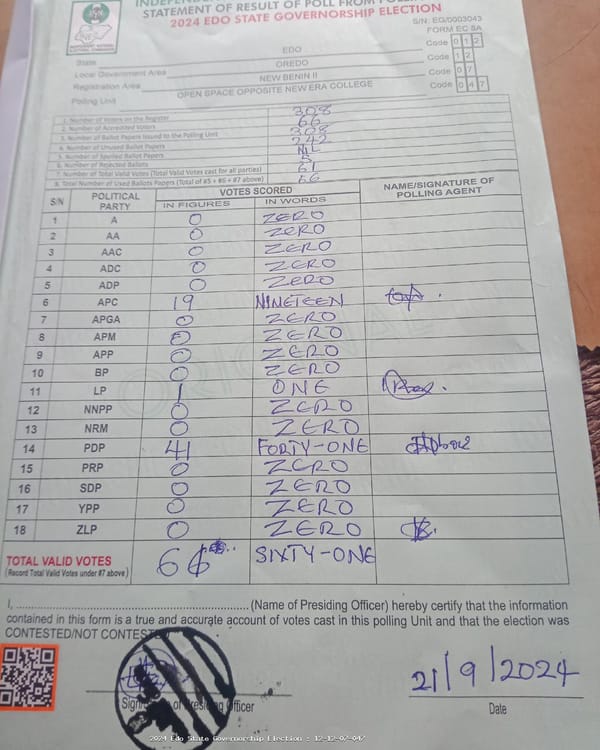 STATEMENT OF RESULT OF POLL FROM POLLING
2024 EDO STATE GOVERNORSHIP ELECTION
S/N: EG/0003043
FORM EC 8A
State EDO Code 0 1 2
Local Government Area OREDO Code 1 2
Registration Area NEW BENIN II Code 0 7
Polling Unit OPEN SPACE OPPOSITE NEW ERA COLLEGE Code 0 4 7
1. Number of Voters on the Register 308
2. Number of Accredited Voters 66
3. Number of Ballot Papers Issued to the Polling Unit 308
4. Number of Unused Ballot Papers 242
5. Number of Spoiled Ballot Papers NIL
6. Number of Rejected Ballots 5
7. Number of Total Valid Votes (Total Valid Votes cast for all parties) 61
8. Total Number of Used Ballots Papers (Total of #5 + #6 + #7 above) 66
S/N POLITICAL PARTY VOTES SCORED NAME/SIGNATURE OF POLLING AGENT
IN FIGURES IN WORDS
1 A 0 ZERO
2 AA 0 ZERO
3 AAC 0 ZERO
4 ADC 0 ZERO
5 ADP 0 ZERO
6 APC 19 NINETEEN
7 APGA 0 ZERO
8 APM 0 ZERO
9 APP 0 ZERO
10 BP 0 ZERO
11 LP 1 ONE
12 NNPP 0 ZERO
13 NRM 0 ZERO
14 PDP 41 FORTY-ONE
15 PRP 0 ZERO
16 SDP 0 ZERO
17 YPP 0 ZERO
18 ZLP 0 ZERO
TOTAL VALID VOTES SIXTY-ONE
(Record Total Valid Votes under #7 above)
I, ............................................ (Name of Presiding Officer) hereby certify that the information
contained in this form is a true and accurate account of votes cast in this polling Unit and that the election was
CONTESTED/NOT CONTESTED
21/9/2024
Signature of Presiding Officer Date
2024 Edo State Governorship Election : 12-12-07-047